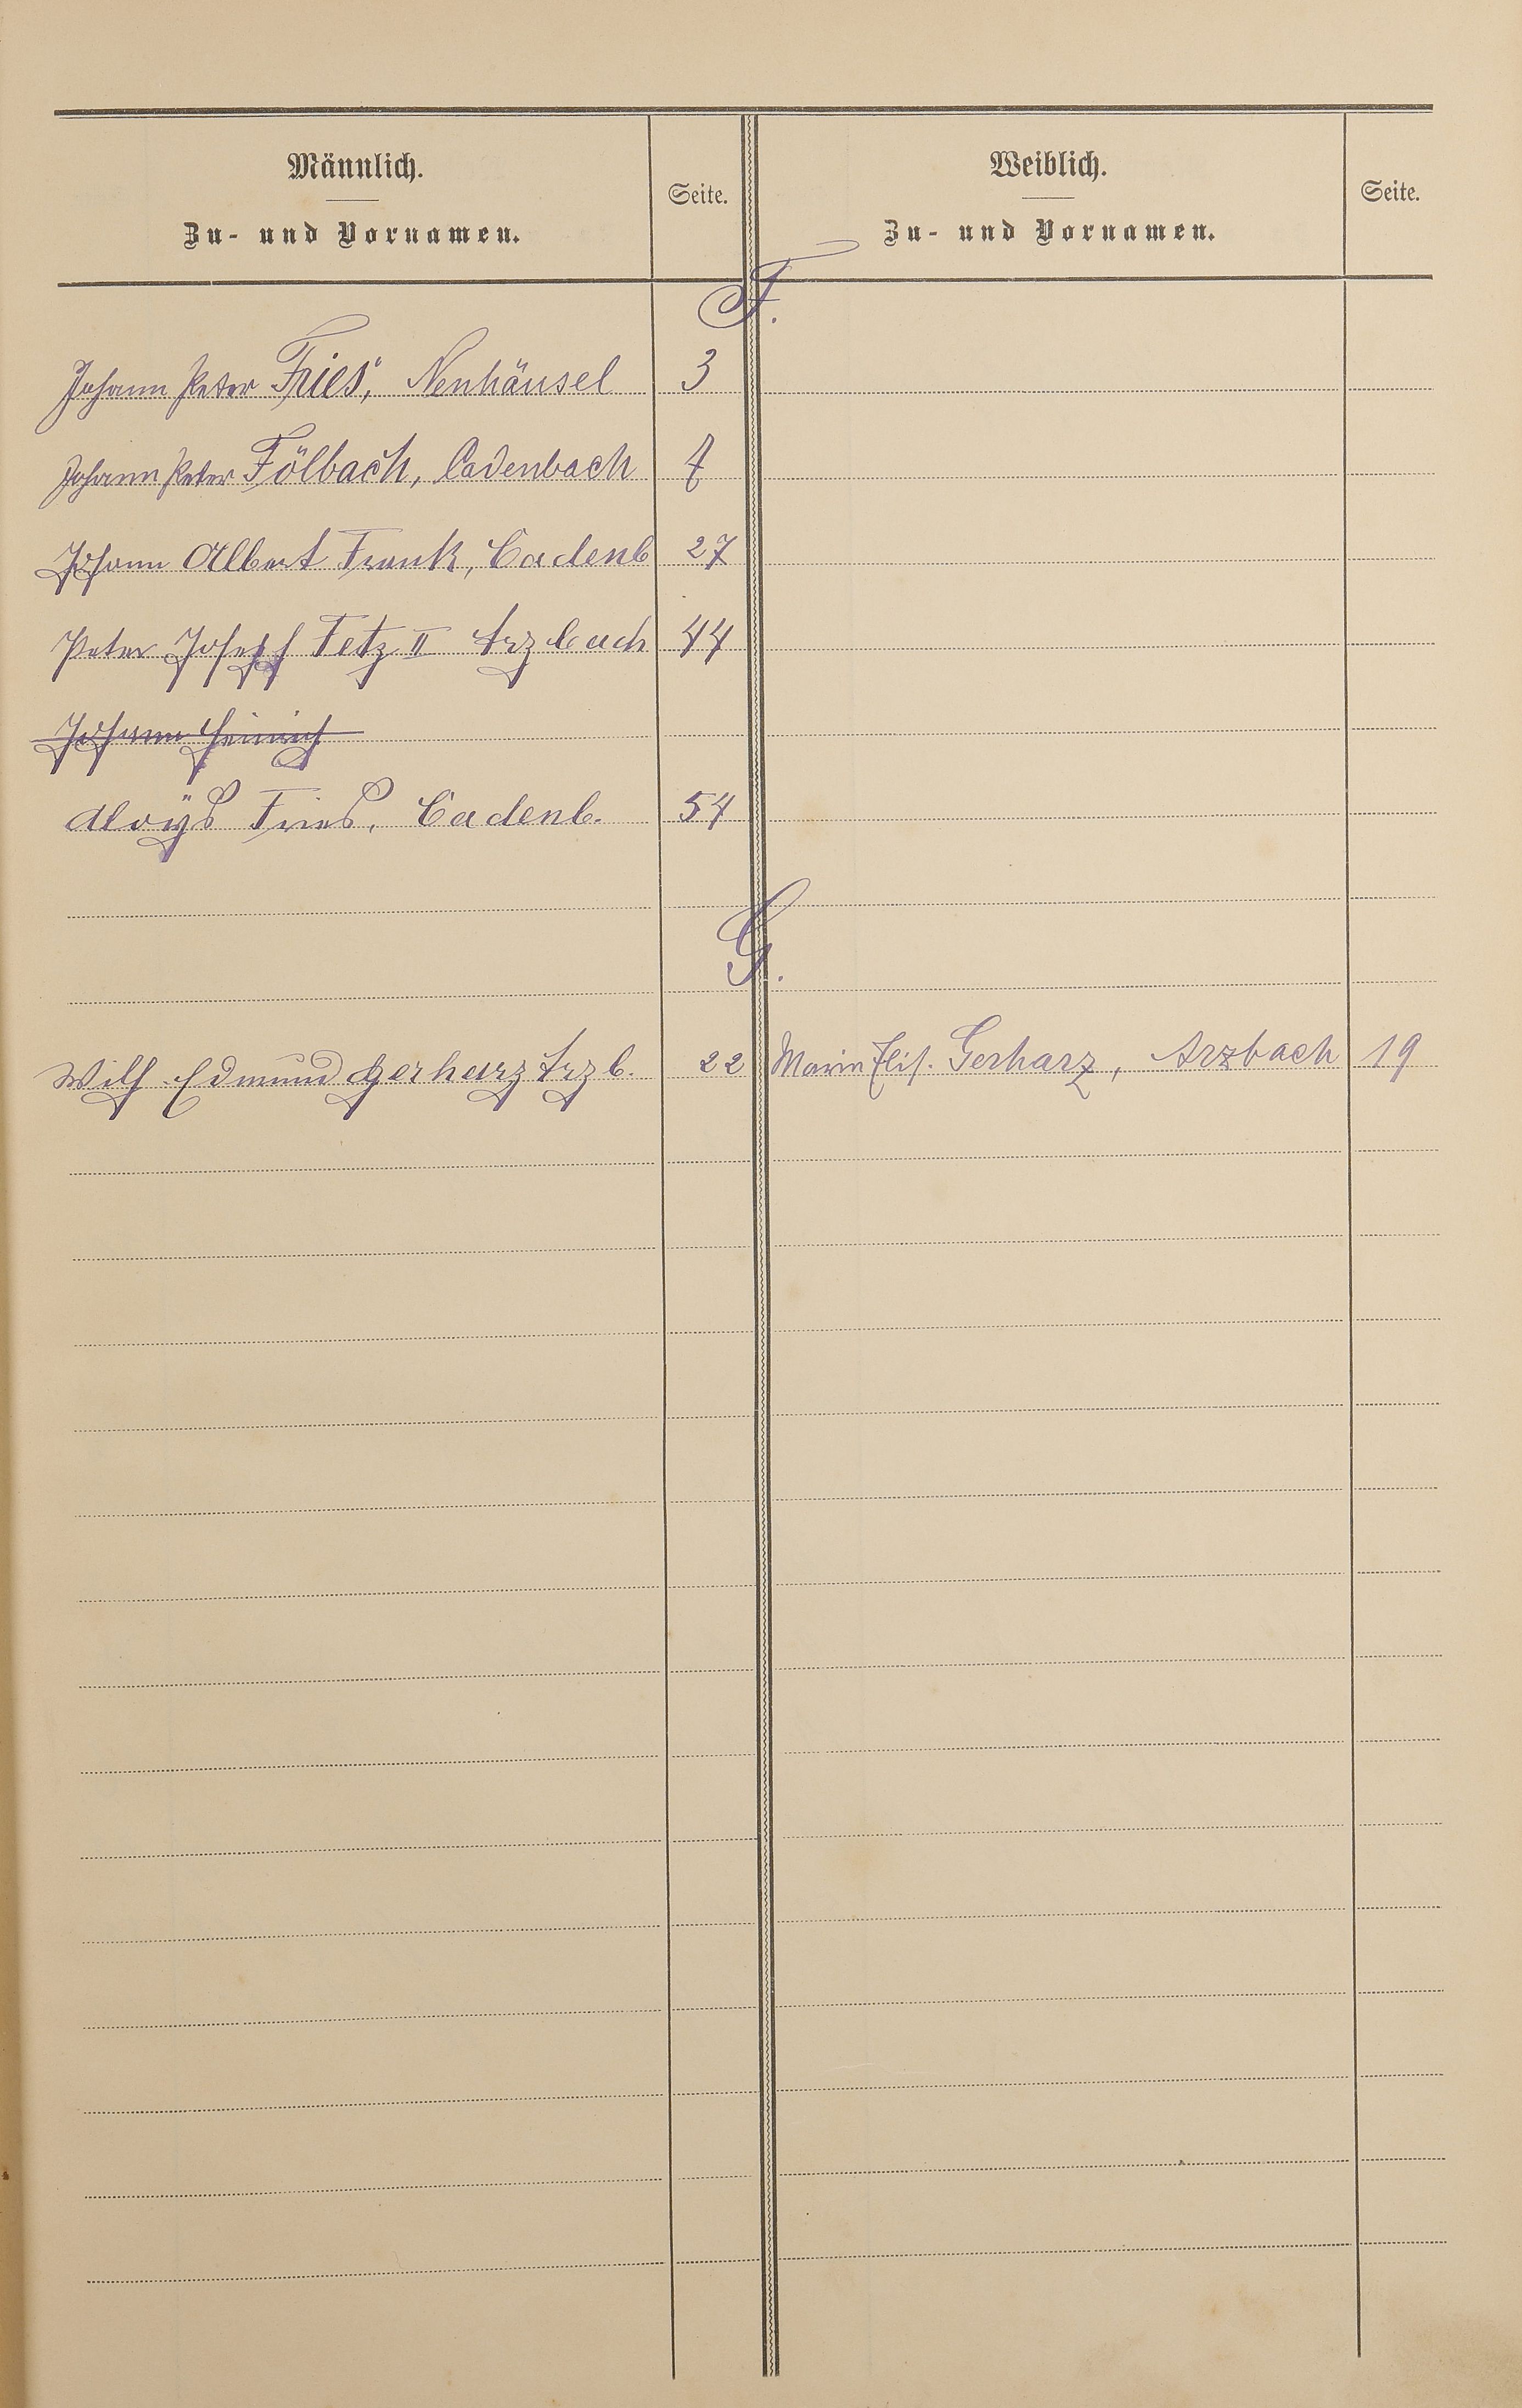 Männlich.
Zu- und Vornamen.
Seite.
Weiblich.
Zu- und Vornamen.
Seite.
F.
Johann Peter Fries, Neuhäusel 3
Johann Peter Fölbach, Cadenbach 7
Johann Albert Frank, Cadenb 27
Peter Joseph Fetz II Arzbach 44
Johann Heinrich
Aloÿs Fries, Cadenb. 54
G.
Wilh. Edmund Gerharz Arzb. 22 Maria Elis. Gerharz, Arzbach 19